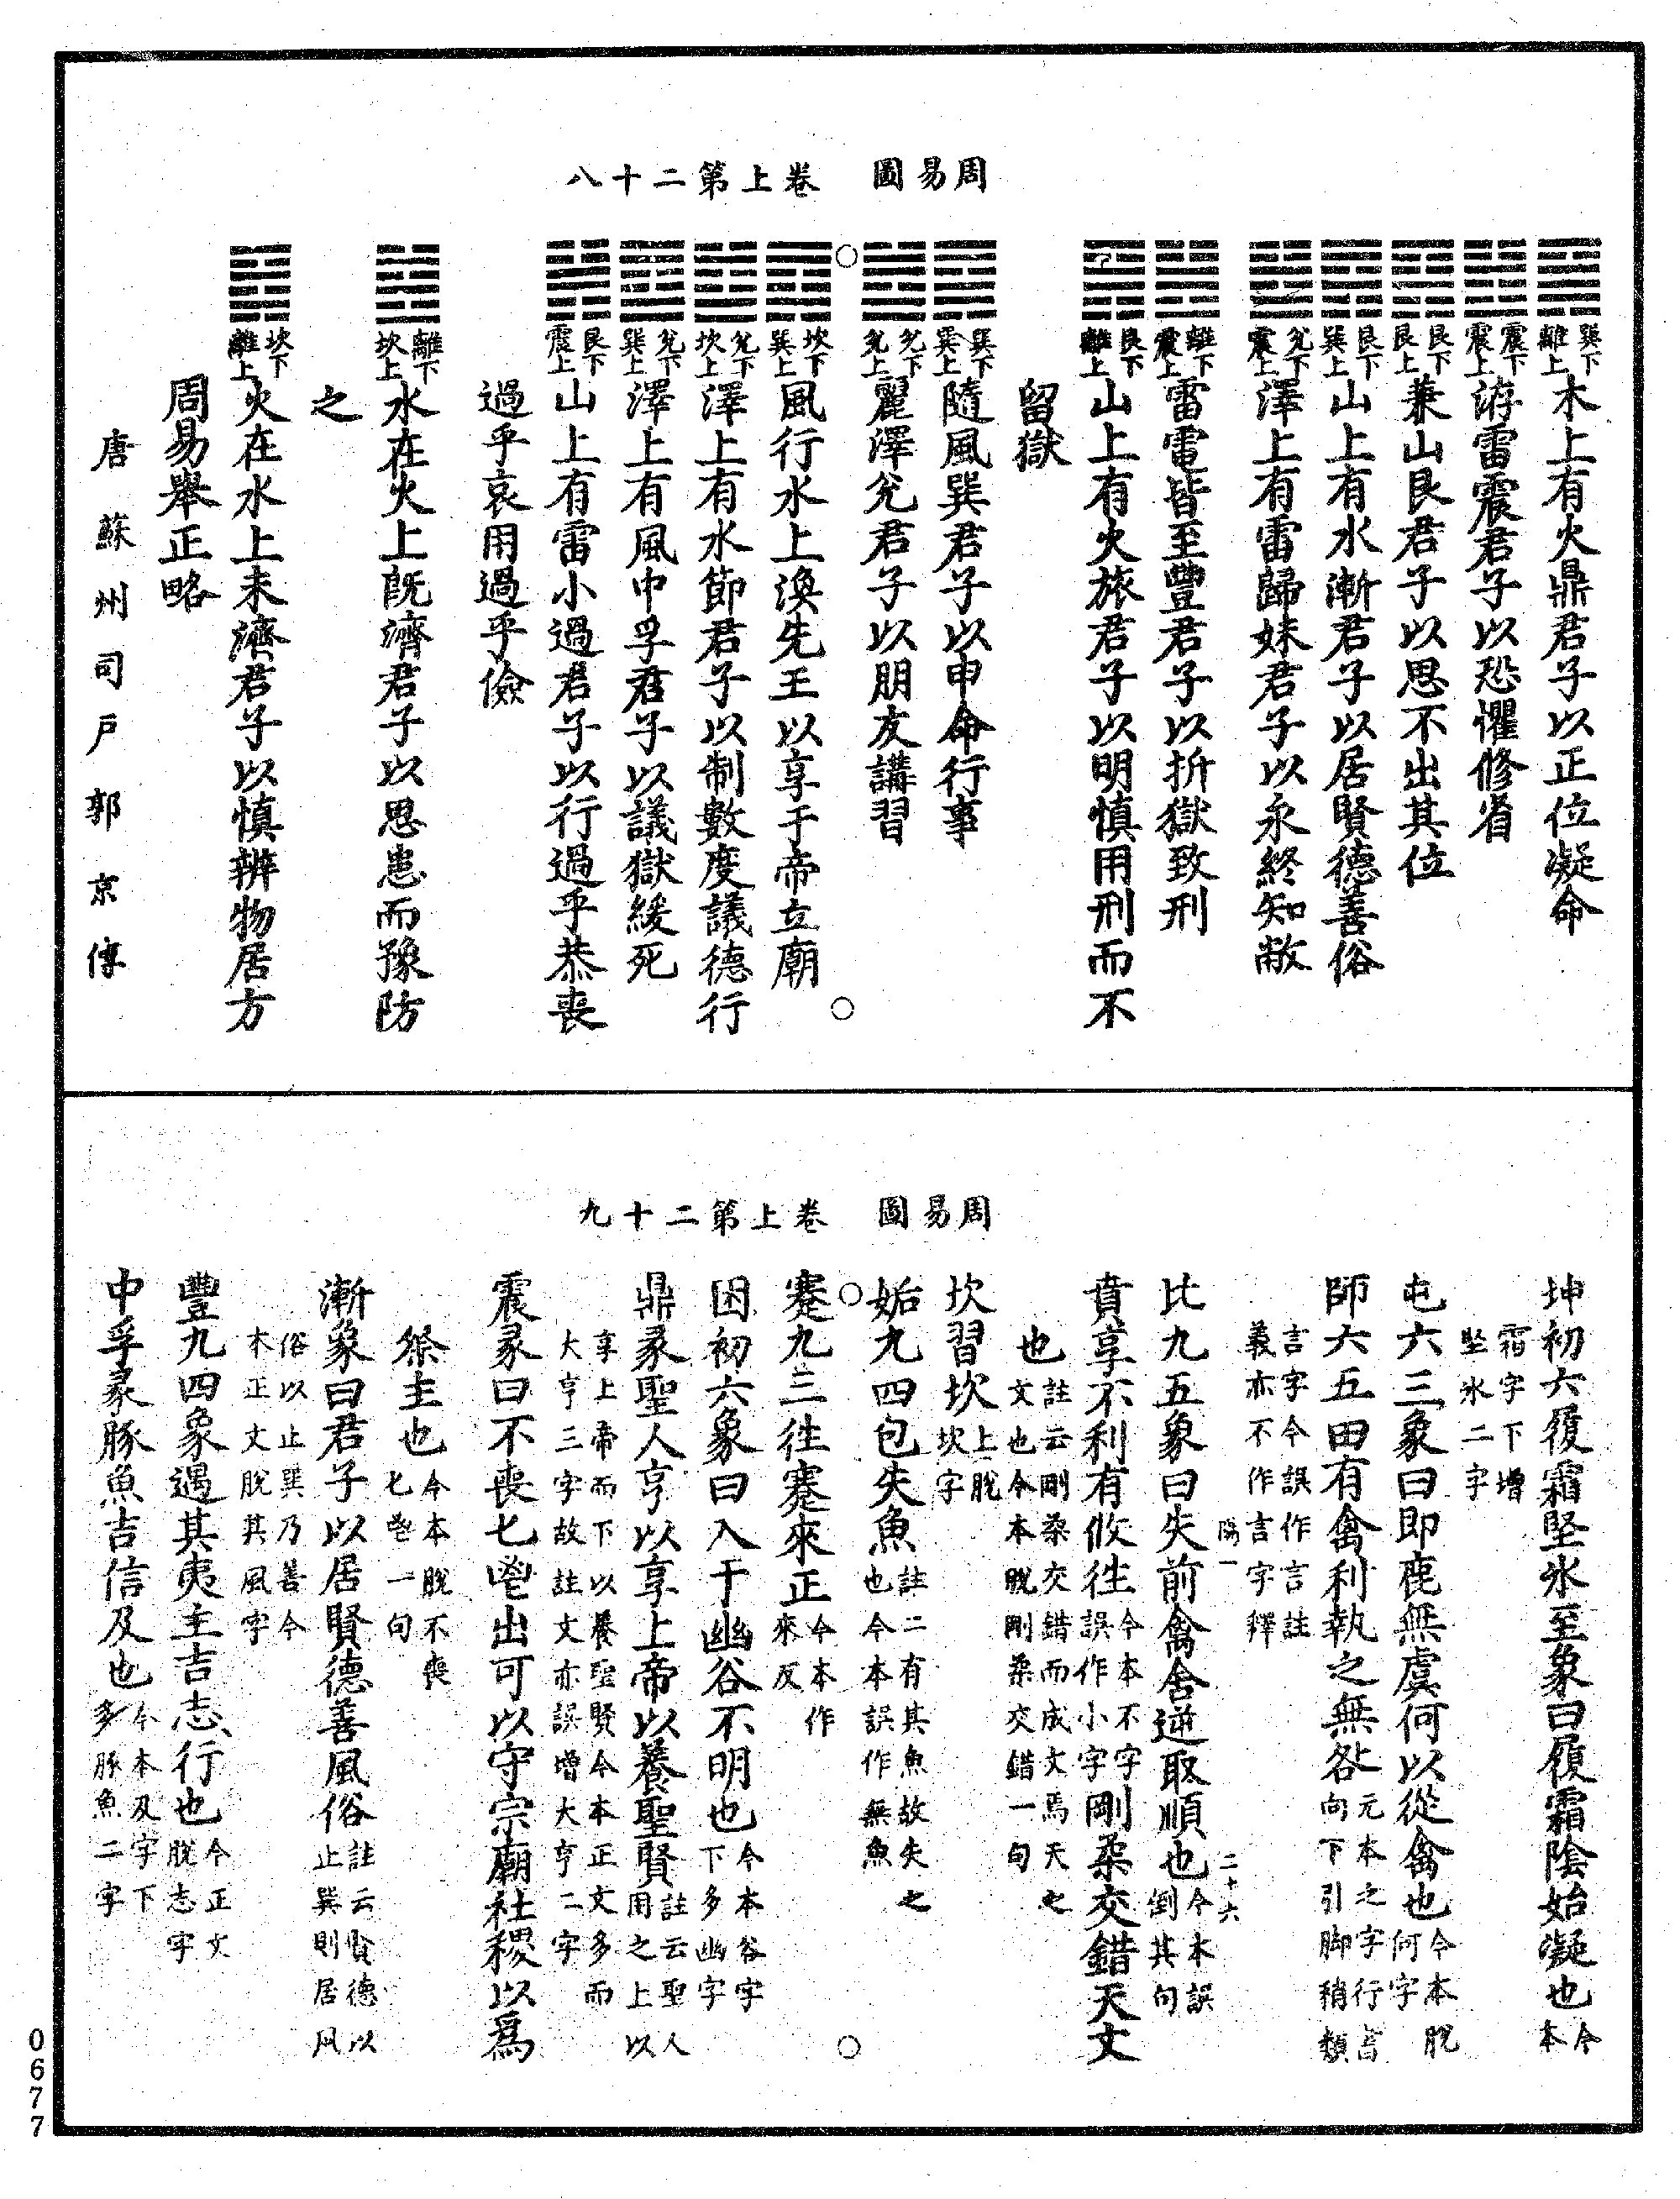 周易圖　卷上第二十八
巽下離上木上有火鼎君子以正位凝命
震下震上洊雷震君子以恐懼修省
艮下艮上兼山艮君子以思不出其位
艮下巽上山上有水漸君子以居賢德善俗
兌下震上澤上有雷歸妹君子以永終知敝
離下震上雷電皆至豐君子以折獄致刑
艮下離上山上有火旅君子以明慎用刑而不
留獄
巽下巽上隨風巽君子以申命行事
兌下兌上麗澤兌君子以朋友講習
○　○
坎下巽上風行水上渙先王以享于帝立廟
兌下坎上澤上有水節君子以制數度議德行
兌下巽上澤上有風中孚君子以議獄緩死
艮下震上山上有雷小過君子以行過乎恭喪
過乎哀用過乎儉
離下坎上水在火上旣濟君子以思患而豫防
之
坎下離上火在水上未濟君子以慎辨物居方
周易舉正略
唐蘇州司戶郭京傳
周易圖　卷上第二十九
坤初六履霜堅氷至象曰履霜陰始凝也今本
霜字下增堅氷二字
屯六三象曰即鹿無虞何以從禽也今本脫何字
師六五田有禽利執之無咎元本之字行書向下引腳稍類
言字今誤作言註義亦不作言字釋
陽一　二十六
比九五象曰失前禽舍逆取順也今本誤倒其句
賁亨不利有攸往今本不字誤作小字剛柔交錯天文
也註云剛柔交錯而成文焉天之文也今本脫剛柔交錯一句
坎習坎上脫坎字
姤九四包失魚註二有其魚故失之也今本誤作無魚
○　○
蹇九三往蹇來正今本作來反
困初六象曰入于幽谷不明也今本谷字下多幽字
鼎彖聖人亨以享上帝以養聖賢註云聖人用之上以
享上帝而下以養聖賢今本正文多而大亨三字故註文亦誤增大亨二字
震彖曰不喪匕鬯出可以守宗廟社稷以爲
祭主也今本脫不喪匕鬯一句
漸象曰君子以居賢德善風俗註云賢德以止巽則居風
俗以止巽乃善今木正文脫其風字
豐九四象遇其夷主吉志行也今正文脫志字
中孚彖豚魚吉信及也今本及字下多豚魚二字
0677